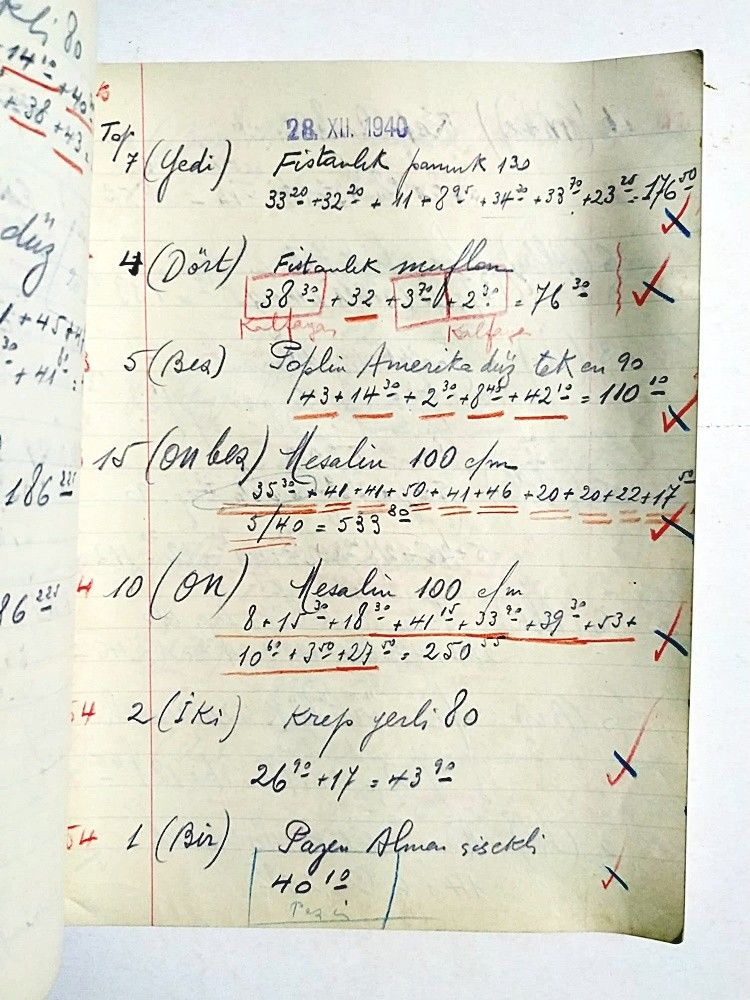 28. XII. 1940
Top
7 (Yedi) Fistanlık pamuk 130
33 20 + 32 20 + 11 + 8 95 + 34 20 + 33 70 + 23 25 = 176 50
4 (Dört) Fistanlık muflon
38 30 + 32 + 3 70 + 2 30 = 76 30
5 (Beş) Poplin Amerika düz tek en 90
43 + 14 30 + 2 30 + 8 40 + 42 10 = 110 10
15 (On beş) Mesalin 100 c/m
35 30 + 41 + 41 + 50 + 41 + 46 + 20 + 20 + 22 + 17 50
5/40 = 533 80
10 (On) Mesalin 100 c/m
8 + 15 30 + 18 30 + 41 15 + 33 90 + 39 30 + 53 +
10 60 + 3 50 + 27 50 = 250 55
2 (İki) Krep yerli 80
26 90 + 17 = 43 90
1 (Bir) Pazen Alman
40 10
186 225